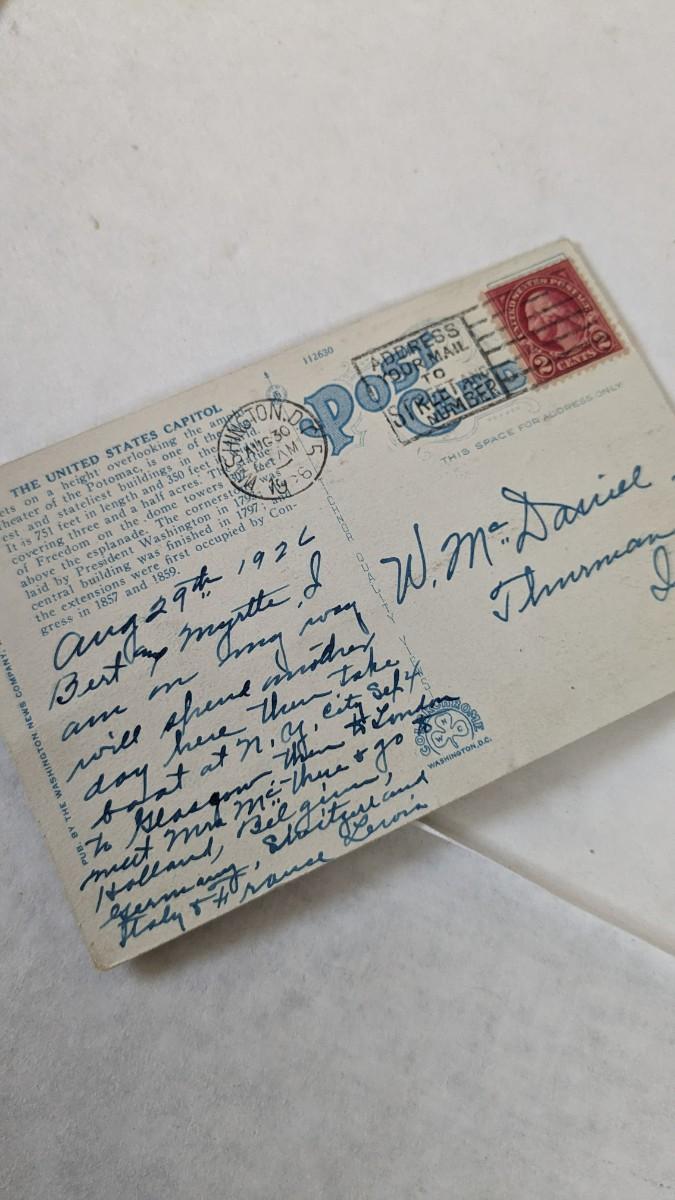 THE UNITED STATES CAPITOL
ets on a height overlooking the am
theater of the Potomac, is one of the
est and stateliest buildings in the
It is 751 feet in length and 350 feet
covering three and a half acres. The
of Freedom on the dome towers feet
above the esplanade. The cornerstone was
laid by President Washington in 179
central building was finished in 1797. and
the extensions were first occupied by Con-
gress in 1857 and 1859.
Aug 29th 1926
Bert & Myrtle, I
am on my way
will spend another
day here then take
boat at N.Y. City Sep 4
to Glasgow then to London
meet Mrs Mc there & go to
Holland, Belgium,
Germany, Switzerland
Italy & France Lewis
PUB. BY THE WASHINGTON NEWS COMPANY,
112630
POST
WASHINGTON, D.C.
AUG 30
AM
ADDRESS
YOUR MAIL
TO
STREET AND
NUMBER
UNITED STATES POSTAGE
2 CENTS 2
THIS SPACE FOR ADDRESS ONLY
W. McDaniel
Thurman
QUALITY VIEWS
WASHINGTON, D.C.